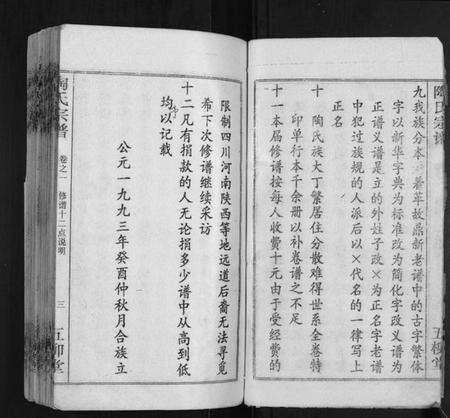 陶氏宗譜
九我族分本着革故鼎新老谱中的古字繁体
字以新华字典为标准改为简化字政义谱为
正谱义谱是立的外姓子改×为正名字老谱
中犯过族规的人派后以×代名的一律写上
正名
十 陶氏族大丁繁居住分散难得世系全卷特
印单行本千余册以补卷谱之不足
十一本届修谱按每人收费十元由于受经费的
五柳堂
限制四川河南陕西等地远道后裔无法寻觅
希下次修谱继续采访
十二凡有捐款的人无论捐多少谱中从高到低
均以记载
公元一九九三年癸酉仲秋月合族立
陶氏宗譜
卷之一
修谱十二点说明
三
五柳堂